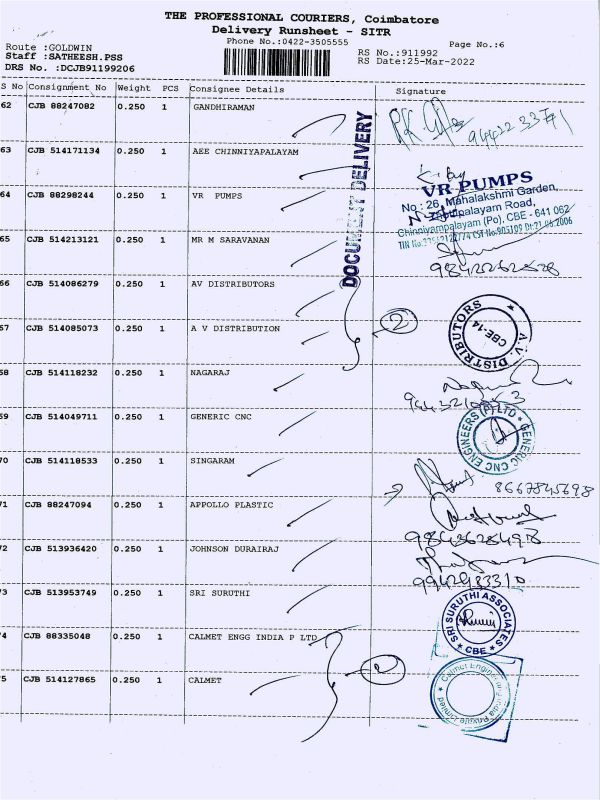 THE PROFESSIONAL COURIERS, Coimbatore
Delivery Runsheet - SITR
Phone No.:0422-3505555
Page No.:6
Route :GOLDWIN
Staff :SATHEESH.PSS
DRS No. :DCJB91199206
RS No.:911992
RS Date:25-Mar-2022
S No Consignment No Weight PCS Consignee Details Signature
62 CJB 88247082 0.250 1 GANDHIRAMAN
63 CJB 514171134 0.250 1 AEE CHINNIYAPALAYAM
64 CJB 88298244 0.250 1 VR PUMPS
VR PUMPS
No : 26, Mahalakshmi Garden,
Road,
Chinniyampalayam (Po), CBE - 641 062
65 CJB 514213121 0.250 1 MR M SARAVANAN
DOCUMENT DELIVERY
66 CJB 514086279 0.250 1 AV DISTRIBUTORS
67 CJB 514085073 0.250 1 A V DISTRIBUTION
2
A.V. DISTRIBUTORS
CBE-14
68 CJB 514118232 0.250 1 NAGARAJ
69 CJB 514049711 0.250 1 GENERIC CNC
GENERIC CNC ENGINEERS (P) LTD
70 CJB 514118533 0.250 1 SINGARAM
8667845698
71 CJB 88247094 0.250 1 APPOLLO PLASTIC
9843628498
72 CJB 513936420 0.250 1 JOHNSON DURAIRAJ
9942983310
73 CJB 513953749 0.250 1 SRI SURUTHI
SRI SURUTHI ASSOCIATES
CBE
74 CJB 88335048 0.250 1 CALMET ENGG INDIA P LTD
75 CJB 514127865 0.250 1 CALMET
2
Calmet Engineering India Private Limited